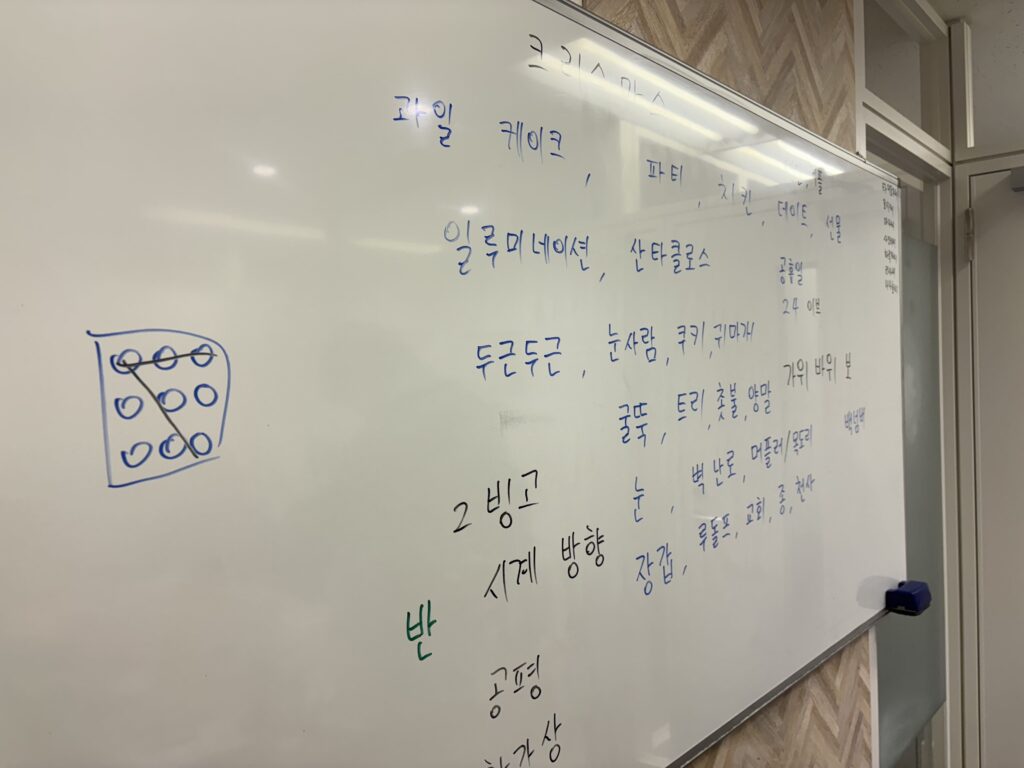 크리스마스
과일 케이크, 파티, 치킨,
데이트, 선물
일루미네이션, 산타클로스
공휴일
24 이브
두근두근, 눈사람, 쿠키, 귀마개
가위 바위 보
굴뚝, 트리, 촛불, 양말
눈, 벽난로, 머플러/목도리
백넘버
장갑, 루돌프, 교회, 종, 천사
2 빙고
시계 방향
반
공평